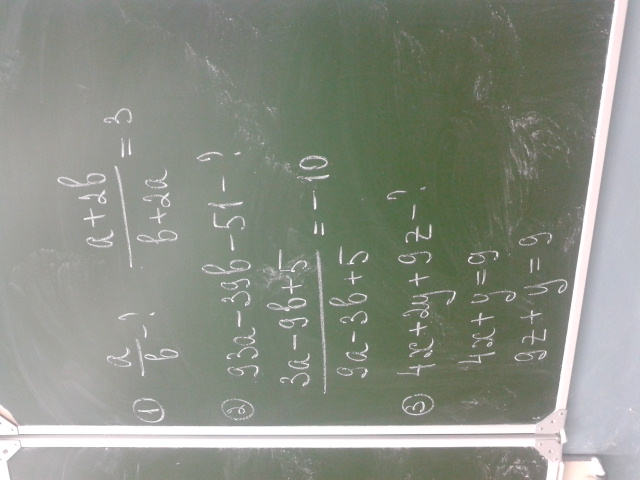 ① a/b - ? (a+2b)/(b+2a) = 3
② 93a-39b-51-?
(3a-9b+5)/(9a-3b+5) = -10
③ 4x+2y+9z-?
4x+y=9
9z+y=9